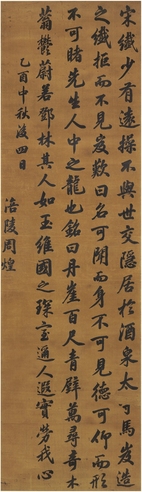 宋纖少有遠操不與世交隱居於酒泉太守馬岌造
之纖拒而不見岌歎曰名可聞而身不可見德可仰而形
不可睹先生人中之龍也銘曰丹崖百尺青壁萬尋奇木
蓊鬱蔚若鄧林其人如玉維國之琛室邇人遐實勞我心
乙酉中秋後四日
涪陵周煌